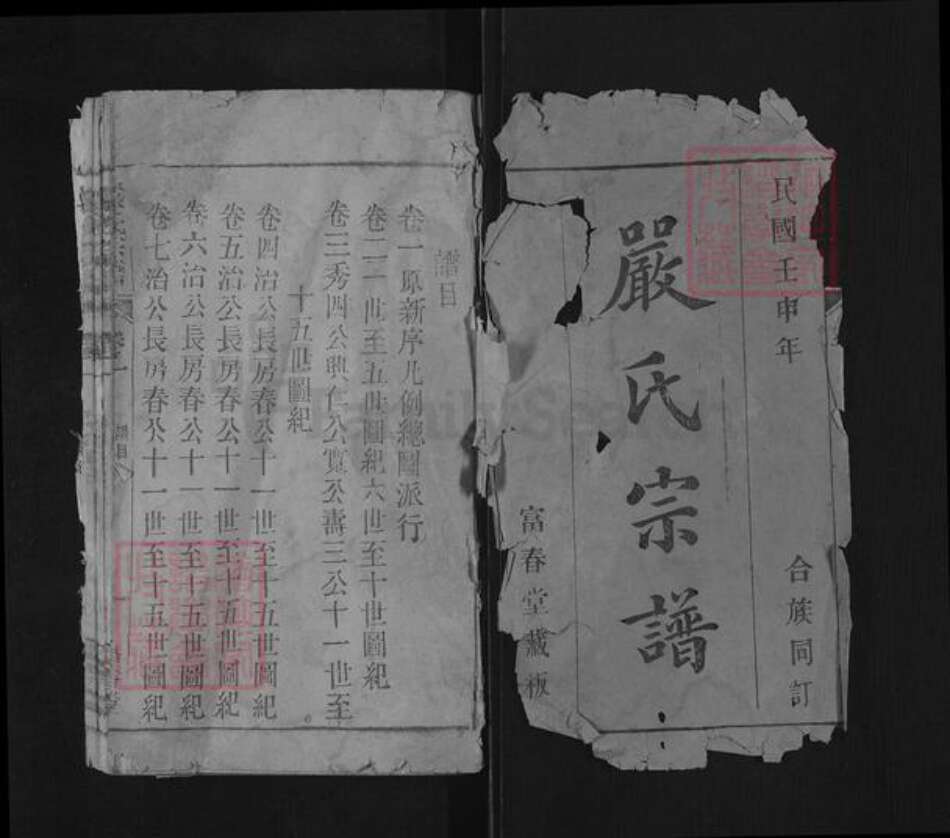 民國壬申年
合族同訂
嚴氏宗譜
富春堂藏板
譜目
卷一原新序凡例總圖派行
卷二一世至五世圖紀六世至十世圖紀
卷三秀四公興仁公寬公壽三公十一世至
十五世圖紀
卷四治公長房春公十一世至十五世圖紀
卷五治公長房春公十一世至十五世圖紀
卷六治公長房春公十一世至十五世圖紀
卷七治公長房春公十一世至十五世圖紀
譜目
FamilySearch